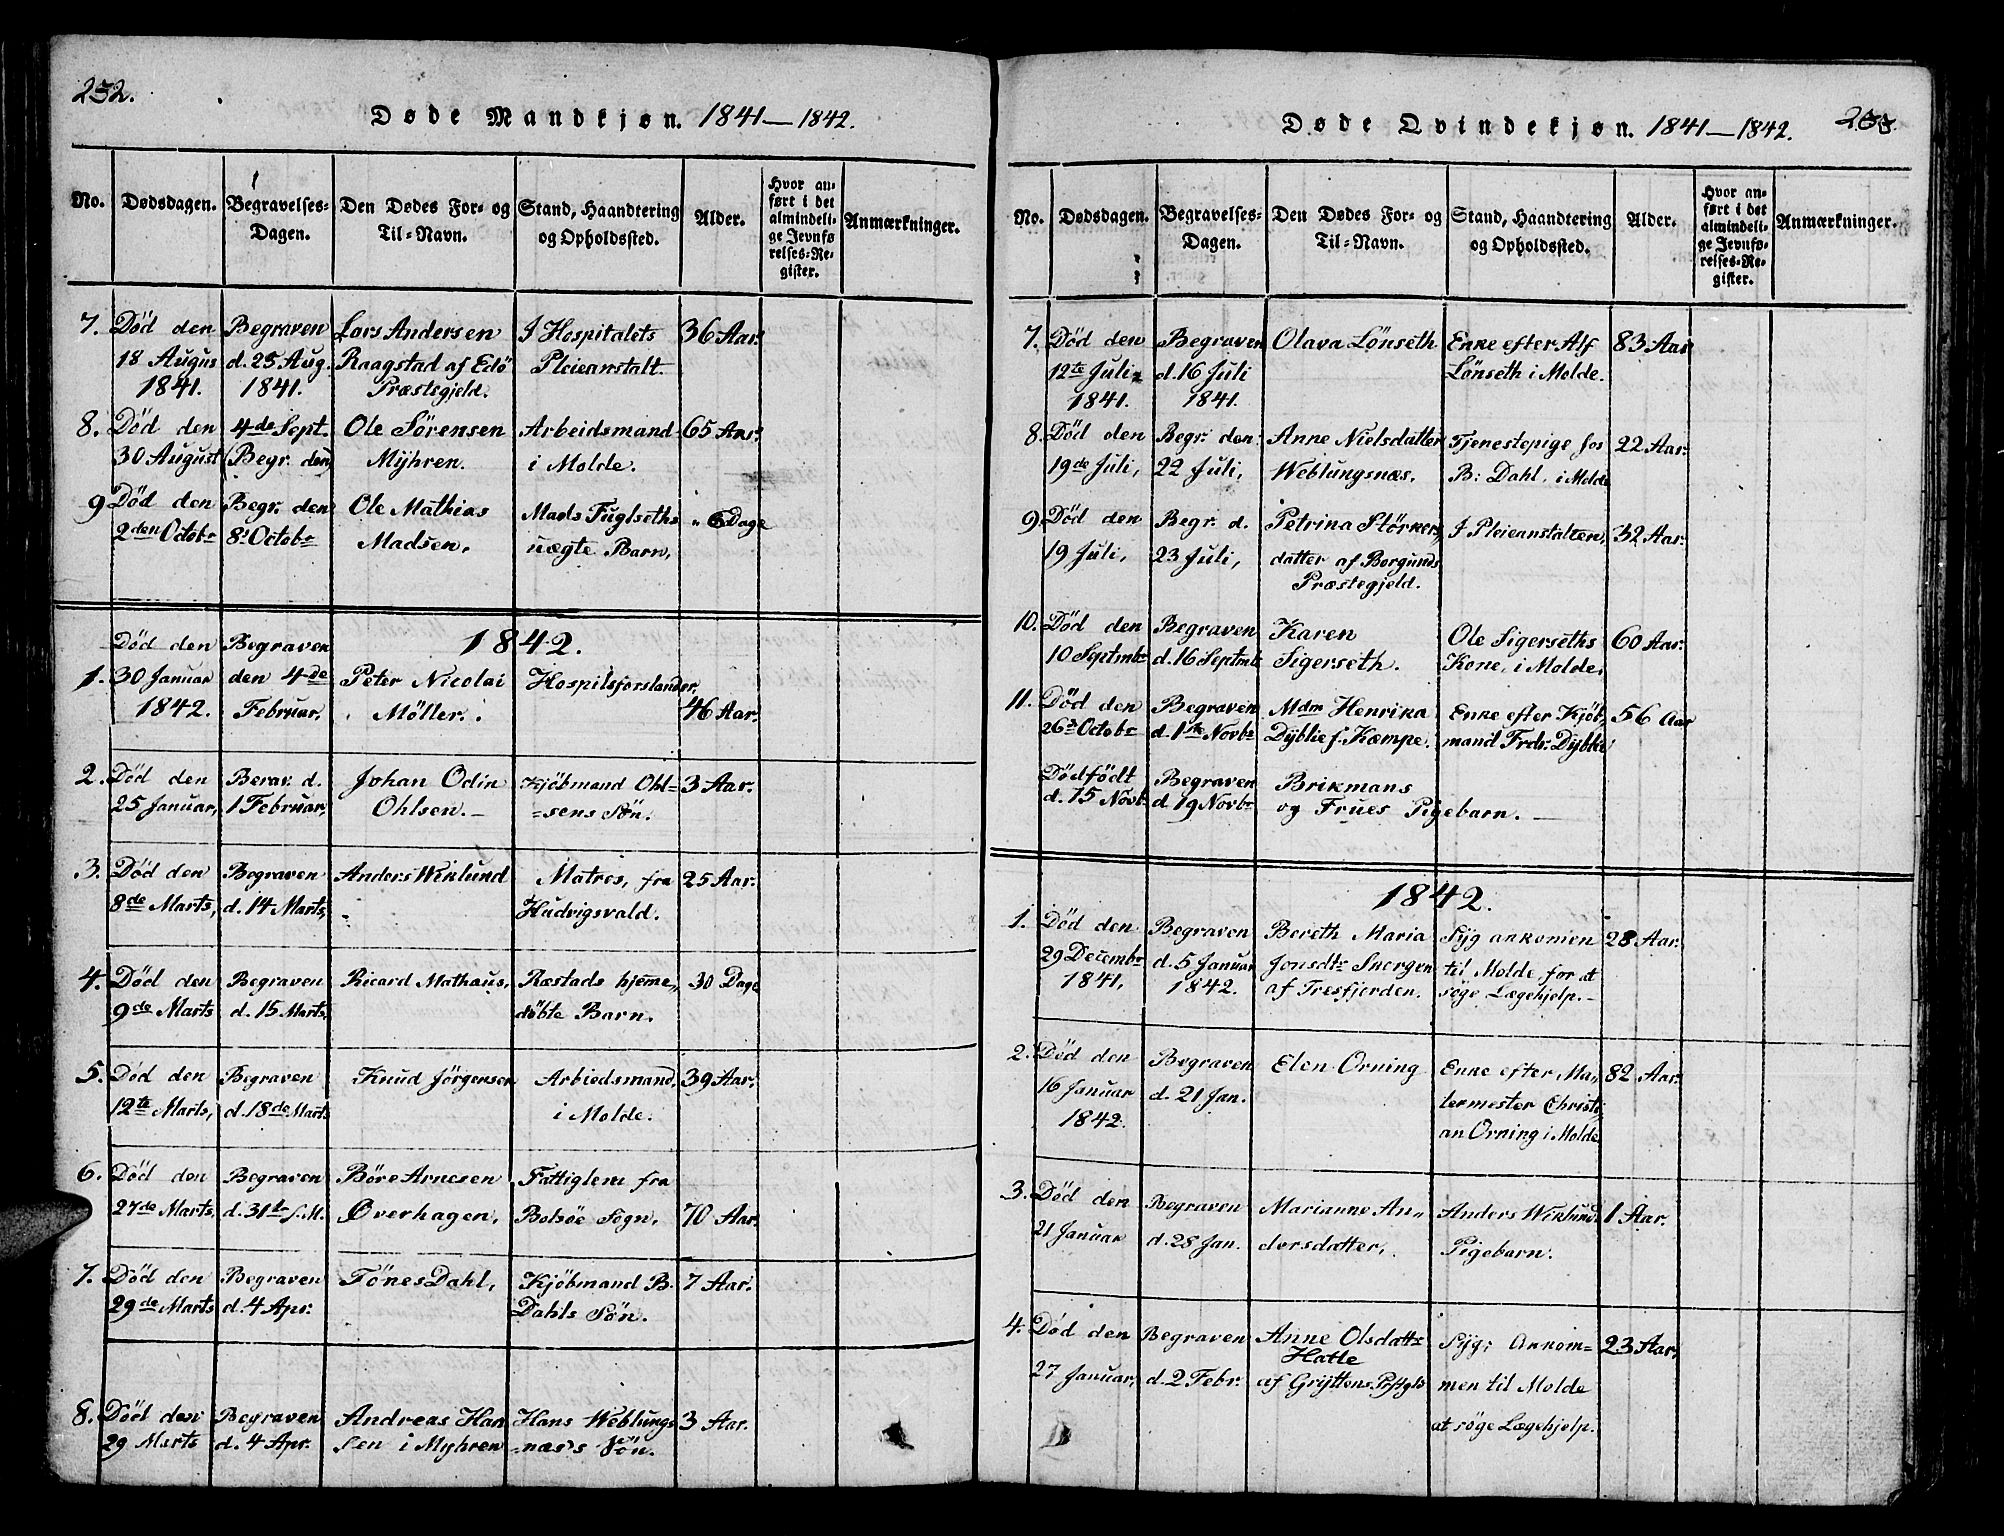 232.
Døde Mandkjøn. 1841—1842.
No.
Dødsdagen.
Begravelses-
Dagen.
Den Dødes For- og
Til-Navn.
Stand, Haandtering
og Opholdssted.
Alder.
Hvor an-
ført i det
almindeli-
ge Jevnfø-
relses-Re-
gister.
Anmærkninger.
7. Død den Begraven Lars Andersen I Hospitalets 36 Aar.
18 Augus d. 25 Aug. Raagstad af Edö Pleieanstalt.
1841. 1841. Præstegjeld.
8. Død den 4de Sept. Ole Sörensen Arbeidsmand 65 Aar.
30 August Begr. den Myhren. i Molde.
9 Død den Begr. den Ole Mathias Mads Fuglseths 6 Dage
2den Octobr 8. Octobr Madsen. uægte Barn,
1842.
Død den Begraven
1. 30 Januar den 4de Peter Nicolai Hospitsforstander,
1842. Februar. Möller. 46 Aar.
2. Død den Berav. d. Johan Odin Kjöbmand Ohl= 3 Aar.
25 Januar, 1 Februar, Ohlsen.— =sens Sön.
3. Død den Begraven Anders Wiklund Matros, fra 25 Aar.
8de Marts, d. 14 Marts, Hudvigsvald.
4. Død den Begraven Ricard Mathæus, Ræstads hjeme„ 30 Dage
9de Marts d. 15 Marts, döbte Barn.
5. Død den Begraven Knud Jörgensen Arbiedsmand, 39 Aar.
12te Marts, d. 18de Marts i Molde.
6. Död den Begraven Böre Arnesen Fattiglem fra
27de Marts, d. 31te s. M. Øverhagen, Bolsöe Sogn, 70 Aar.
7. Död den Begraven Tönes Dahl, Kjöbmand B. 7 Aar.
29de Marts d. 4 Apr. Dahls Sön.
8. Död den Begraven Andreas Han Hans Weblungs 3 Aar.
29 Marts d. 4 Apr. sen i Myhren -næs's Sön.
Døde Qvindekjøn. 1841—1842.
233.
No.
Dødsdagen.
Begravelses-
Dagen.
Den Dødes For- og
Til-Navn.
Stand, Haandtering
og Opholdssted.
Alder.
Hvor an-
ført i det
almindeli-
ge Jevnfø-
relses-Re-
gister.
Anmærkninger.
7. Död den Begraven Olava Lönseth Enke efter Alf 83 Aar
12te Juli d. 16 Juli Lönseth i Molde.
1841. 1841.
8. Död den Begr. den Anne Nielsdatter Tjenestepige hos 22 Aar.
19de Juli, 22 Juli, Weblungsnæs. B. Dahl, i Molde
9. Död den Begr. d. Petrina Störker„ I Pleieanstalten, 32 Aar.
19 Juli, 23 Juli, datter af Borgunds
Præstegjeld.
10. Död den Begraven Karen Ole Sigerseths 60 Aar.
10 Septmbr d. 16 Septmb. Sigerseth. Kone, i Molde.
11. Död den Begraven Mdm Henrika Enke efter Kjöb, 56 Aar
26de Octobr d. 1ste Novbr Dyblie f. Kæmpe. mand Frdr. Dyblie
Dödfödt Begraven Brikmans
d. 15 Novb. d. 19 Novbr og Frues Pigebarn.—
1842.
1. Död den Begraven Bereth Maria Syg ankomen 28 Aar.
29 Decembr d. 5 Januar Jonsdtr Snorgen til Molde, for at
1841, 1842. af Tresfjorden. söge Lægehjelp.—
2. Död den Begraven Elen Orning Enke efter Ma„ 82 Aar.
16 Januar d. 21 Jan. lermester Christi„
1842. an Orning i Molde
3. Död den Begraven Marianne An„ Anders Wiklunds 1 Aar.
21 Januar d. 28 Jan. dersdatter, Pigebarn.
4. Död den Begraven Anne Olsdattr Syg; Ankom= 23 Aar,
Hatle
27 Januar, d. 2 Febr. af Gryttens Præstgld men til Molde
at söge Lægehjelp.